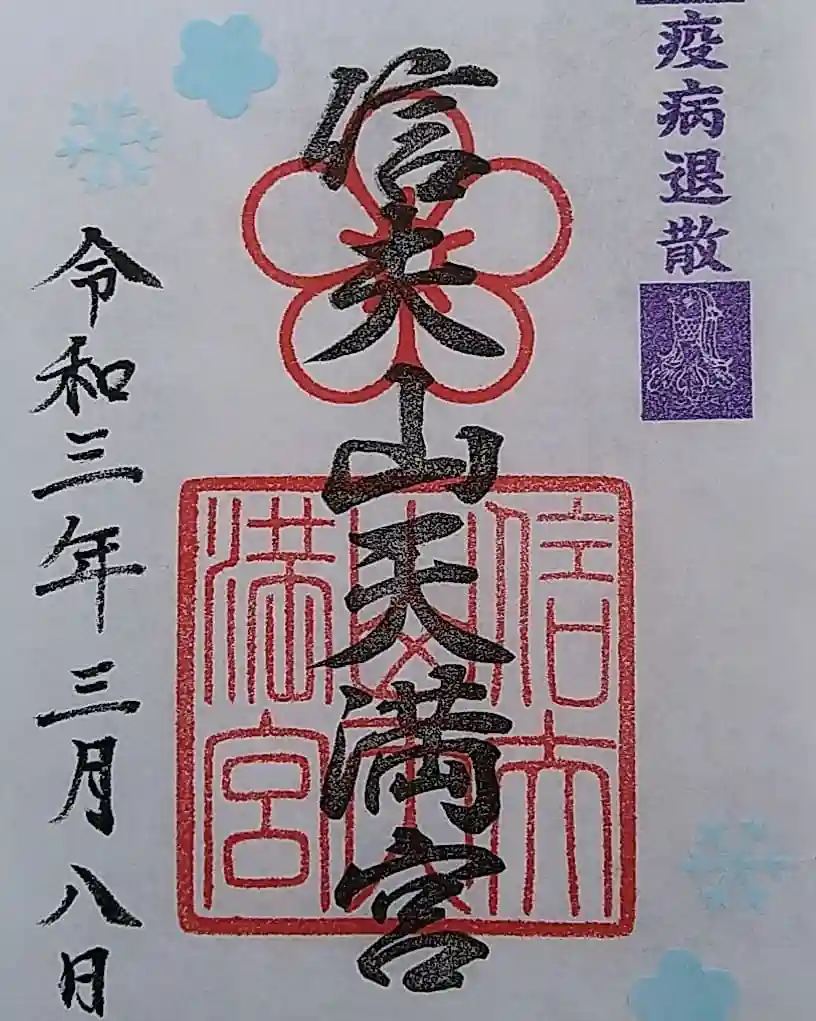 疫病退散
信夫山天満宮
信夫
山天
満宮
令和三年三月八日